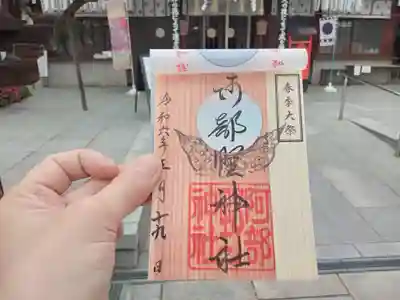 春季大祭
阿部野神社
阿部野神社
令和六年三月十九日